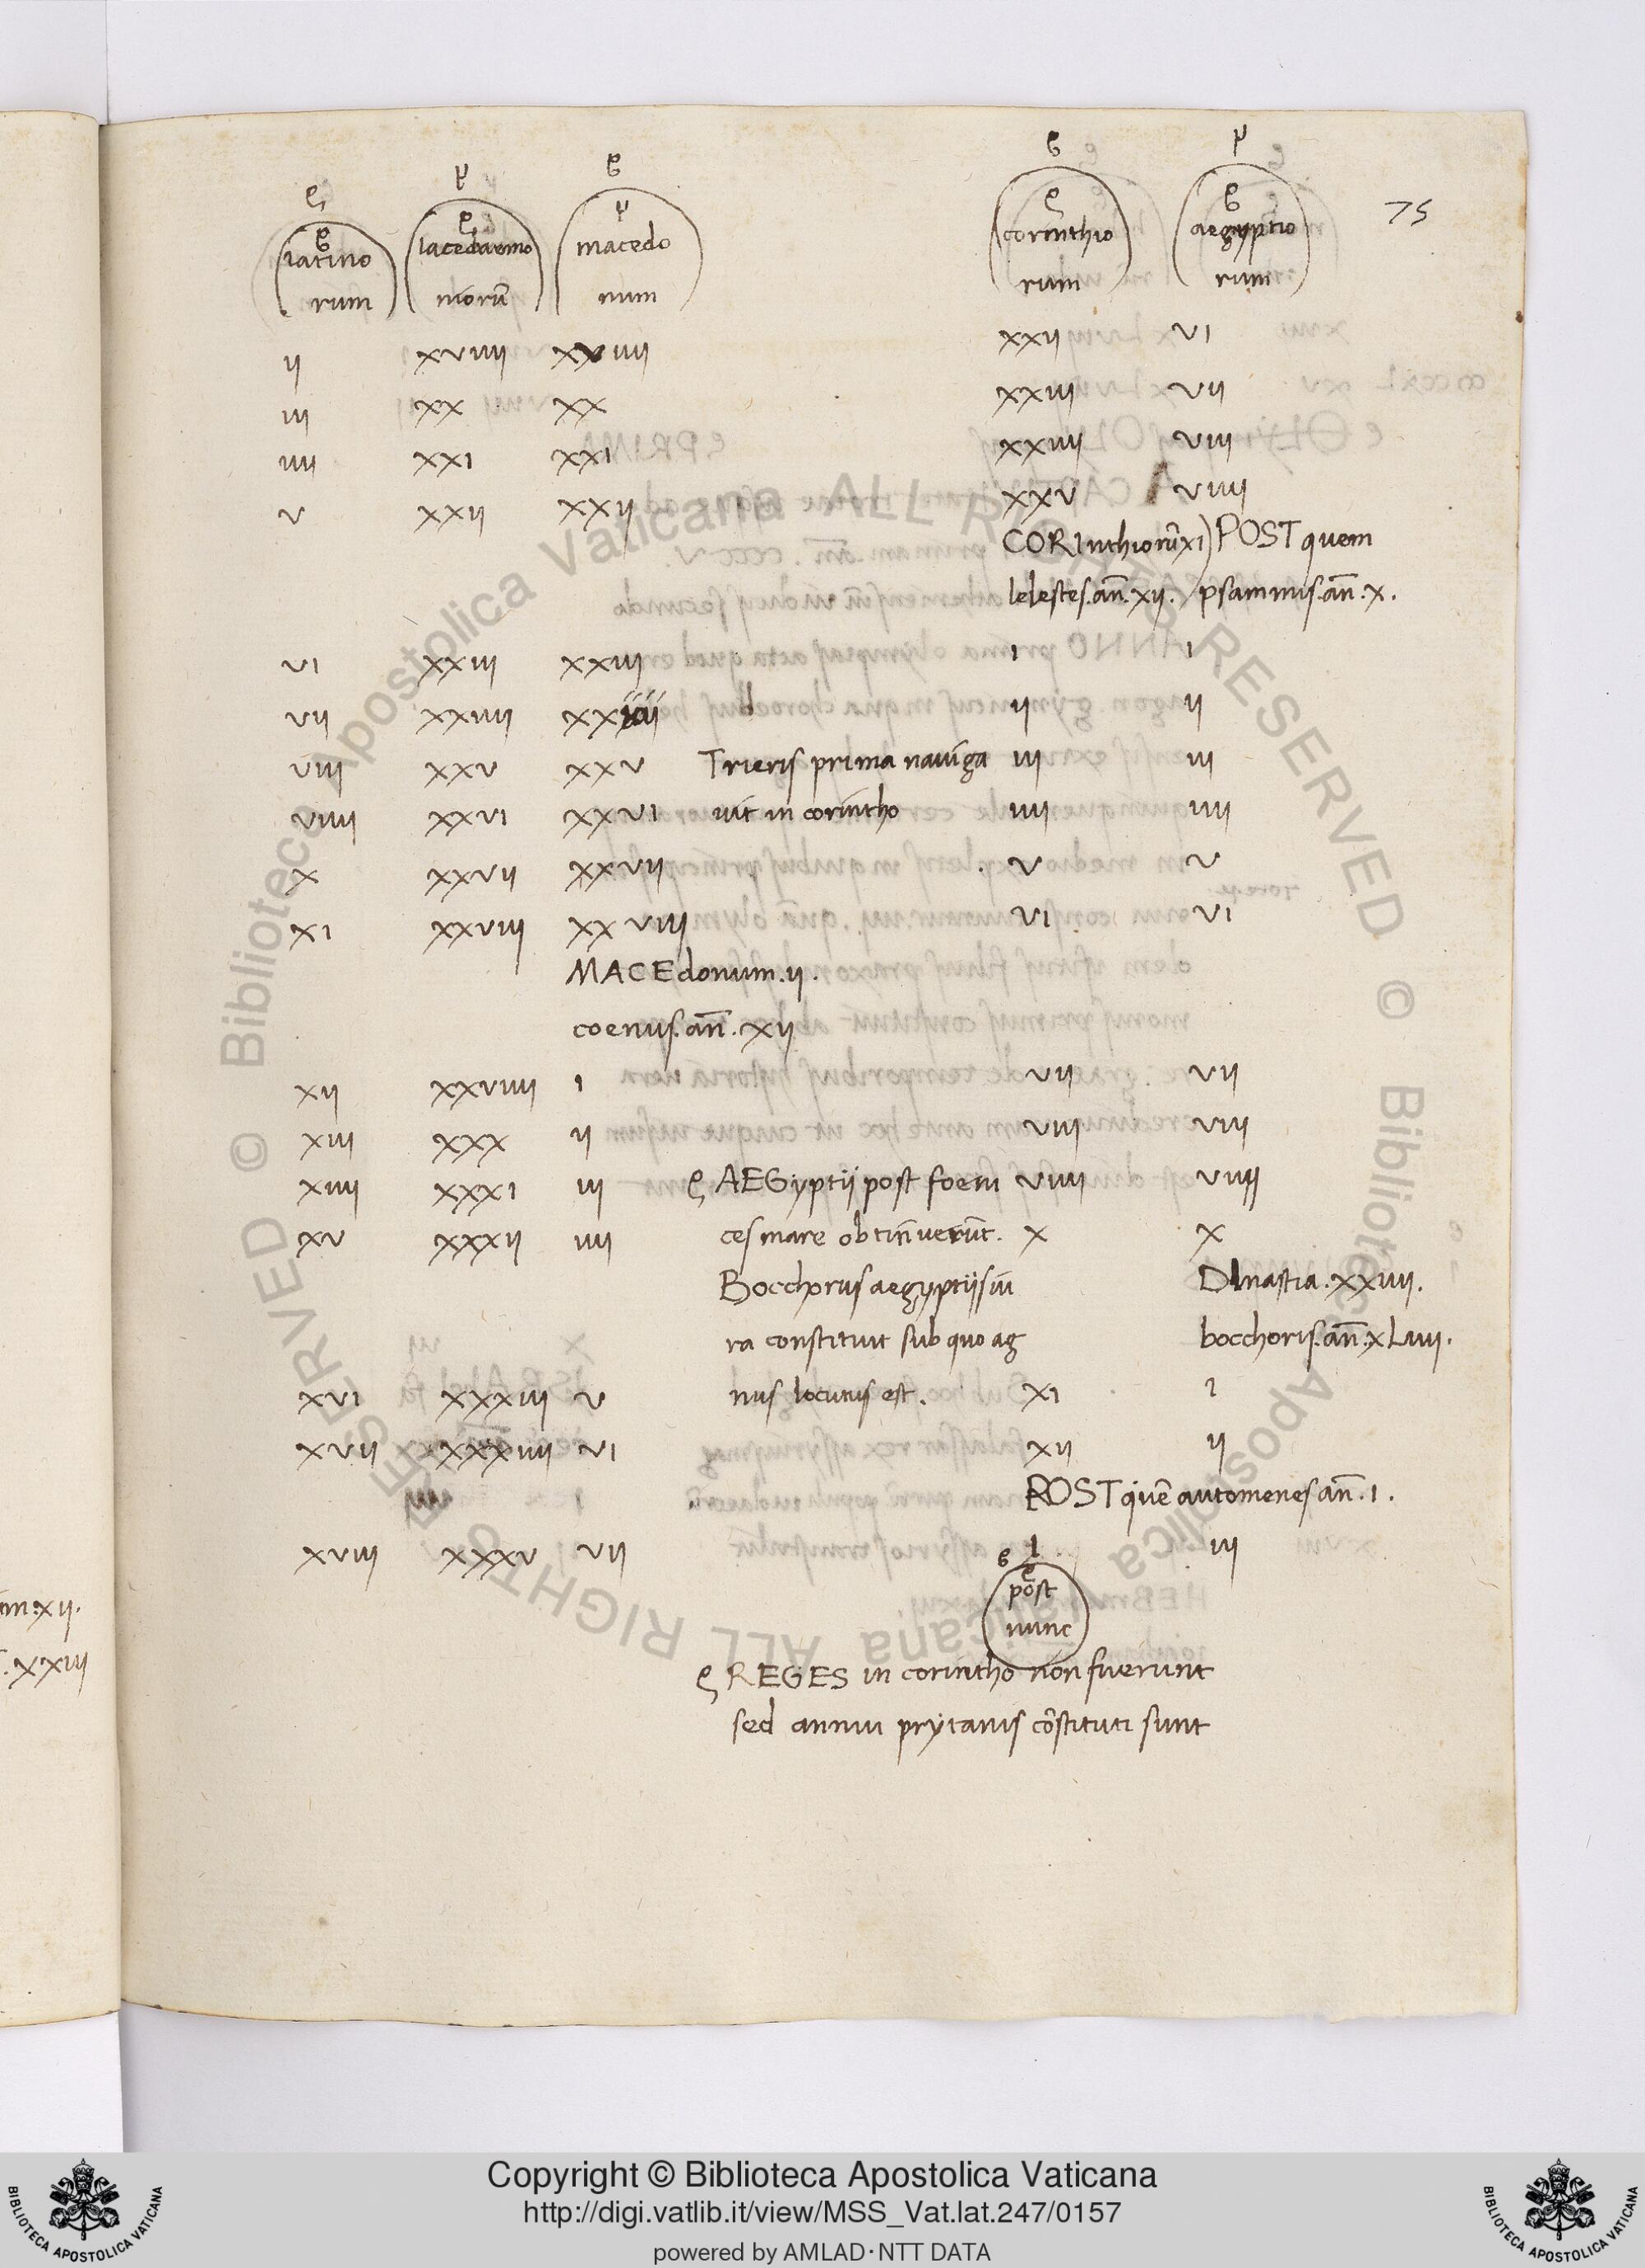 75
latino lacedaemo macedo corinthio aegyptio
rum niorū num rum rum
ii xviiii xviiii xxii vi
iii xx xx xxiii vii
iiii xxi xxi xxiiii viii
v xxii xxii xxv viiii
CORInthiorū xi) POST quem
lelestes. an̄. xii. psammus. an̄. x.
vi xxiii xxiii i i
vii xxiiii xxiiii ii ii
viii xxv xxv Trieris prima nauiga iii iii
viiii xxvi xxvi uit in corintho iiii iiii
x xxvii xxvii v v
xi xxviii xxviii vi vi
MACEdonum. ii.
coenus. an̄. xii
xii xxviiii i vii vii
xiii xxx ii viii viii
xiiii xxxi iii AEGyptii post foeni viiii viiii
xv xxxii iiii ces mare obtinuerunt. x x
Bocchorus aegyptiis iu DInastia. xxiiii.
ra constituit sub quo ag bocchoris. an̄. xLiiii.
xvi xxxiii v nus locutus est. xi i
xvii xxxiiii vi xii ii
POST quē automenes an̄. i.
xviii xxxv vii i iii
post
nunc
REGES in corintho non fuerunt
sed annui prytanis cōstituti sunt
an. xii.
. xxiii
© Biblioteca Apostolica Vaticana ALL RIGHTS RESERVED © Biblioteca Apostolica Vaticana ALL RIGHTS RESERVED
Copyright © Biblioteca Apostolica Vaticana
http://digi.vatlib.it/view/MSS_Vat.lat.247/0157
powered by AMLAD·NTT DATA
BIBLIOTECA APOSTOLICA VATICANA
BIBLIOTECA APOSTOLICA VATICANA